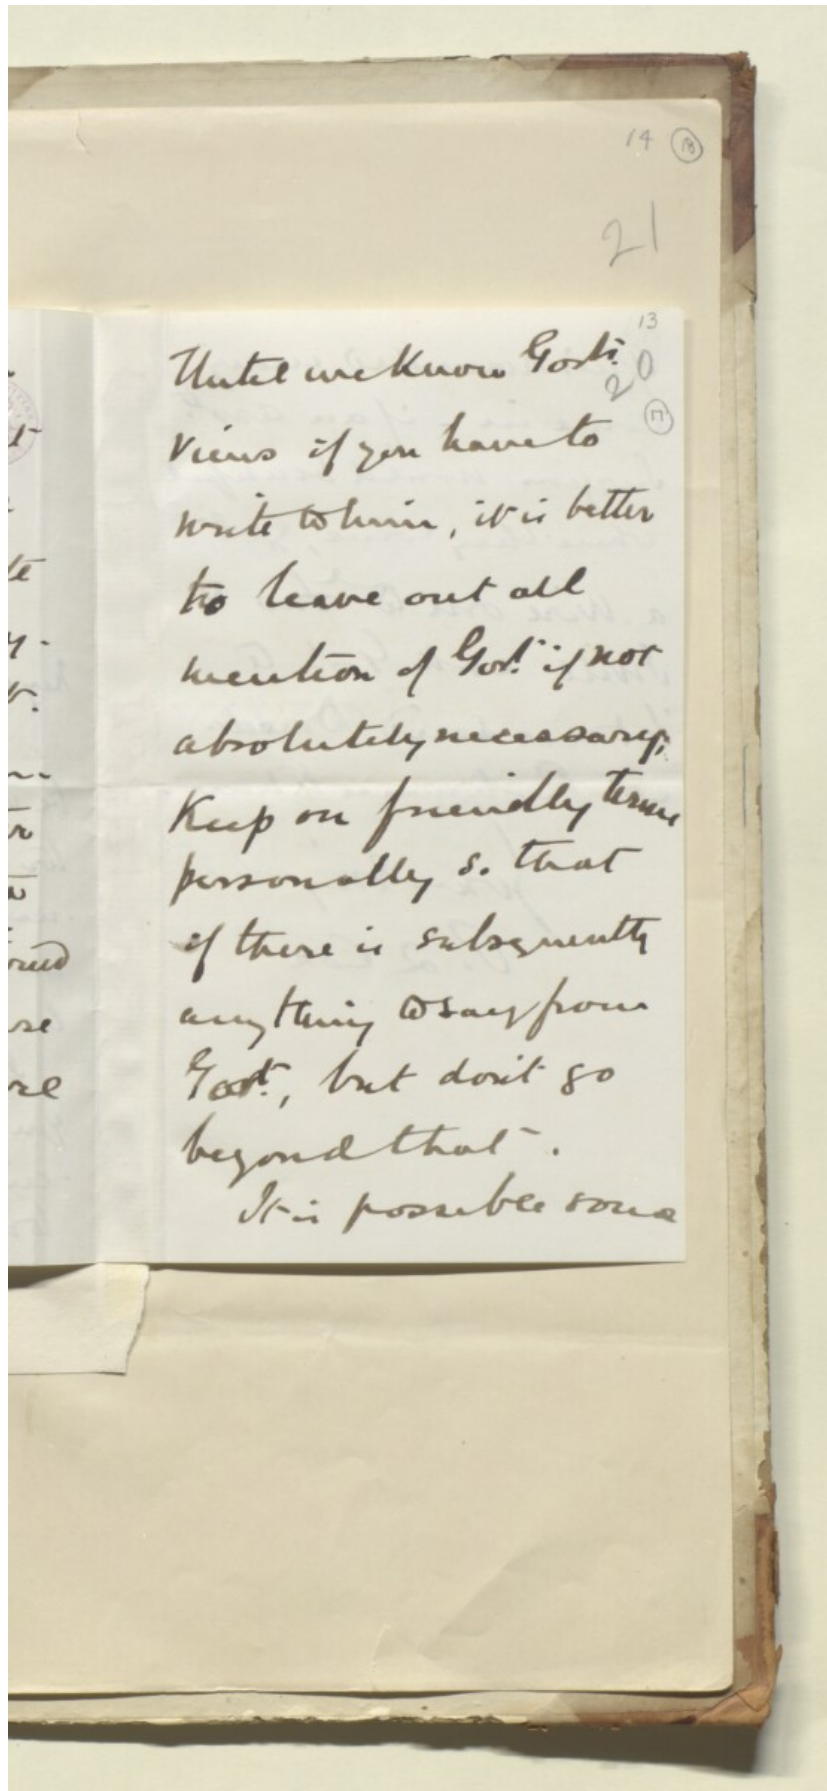 14 18
21
13
20
17
Until we know Govt's.
views if you have to
write to him, it is better
to leave out all
mention of Govt. if not
absolutely necessary.
Keep on friendly terms
personally so that
if there is subsequently
anything to say from
Govt., but don't go
beyond that.
It is possible some
te
y.
r.
re